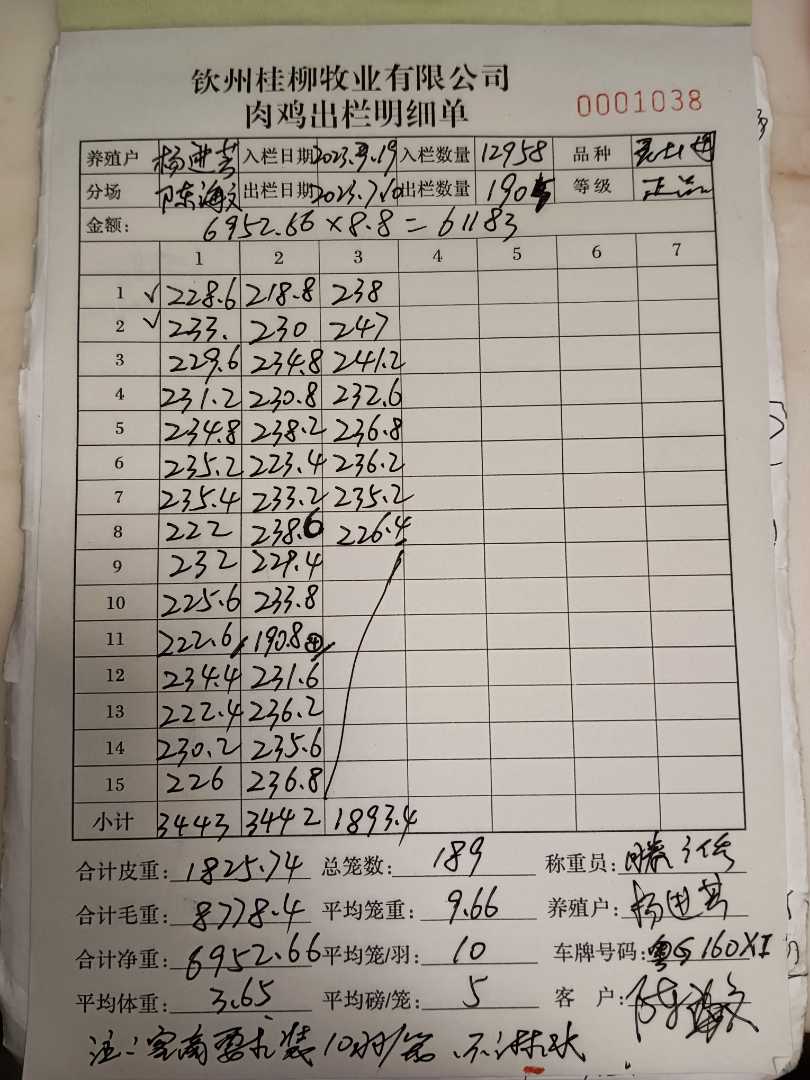 钦州桂柳牧业有限公司
肉鸡出栏明细单 0001038
养殖户 杨进芸 入栏日期 2023.3.19 入栏数量 12958 品种
分场 陈海文 出栏日期 2023.7.10 出栏数量 190 等级 正品
金额: 6952.66×8.8=61183
1 2 3 4 5 6 7
1 √ 228.6 218.8 238
2 √ 233. 230 247
3 229.6 234.8 241.2
4 231.2 230.8 232.6
5 234.8 238.2 236.8
6 235.2 223.4 236.2
7 235.4 233.2 235.2
8 222 238.6 226.4
9 232 229.4
10 225.6 233.8
11 222.6 190.8
12 234.4 231.6
13 222.4 236.2
14 230.2 235.6
15 226 236.8
小计 3443 3442 1893.4
合计皮重: 1825.74 总笼数: 189 称重员:
合计毛重: 8778.4 平均笼重: 9.66 养殖户: 杨进芸
合计净重: 6952.66 平均笼/羽: 10 车牌号码: 粤G160XI
平均体重: 3.65 平均磅/笼: 5 客 户: 陈海文
注:客商要求装10羽/笼、不